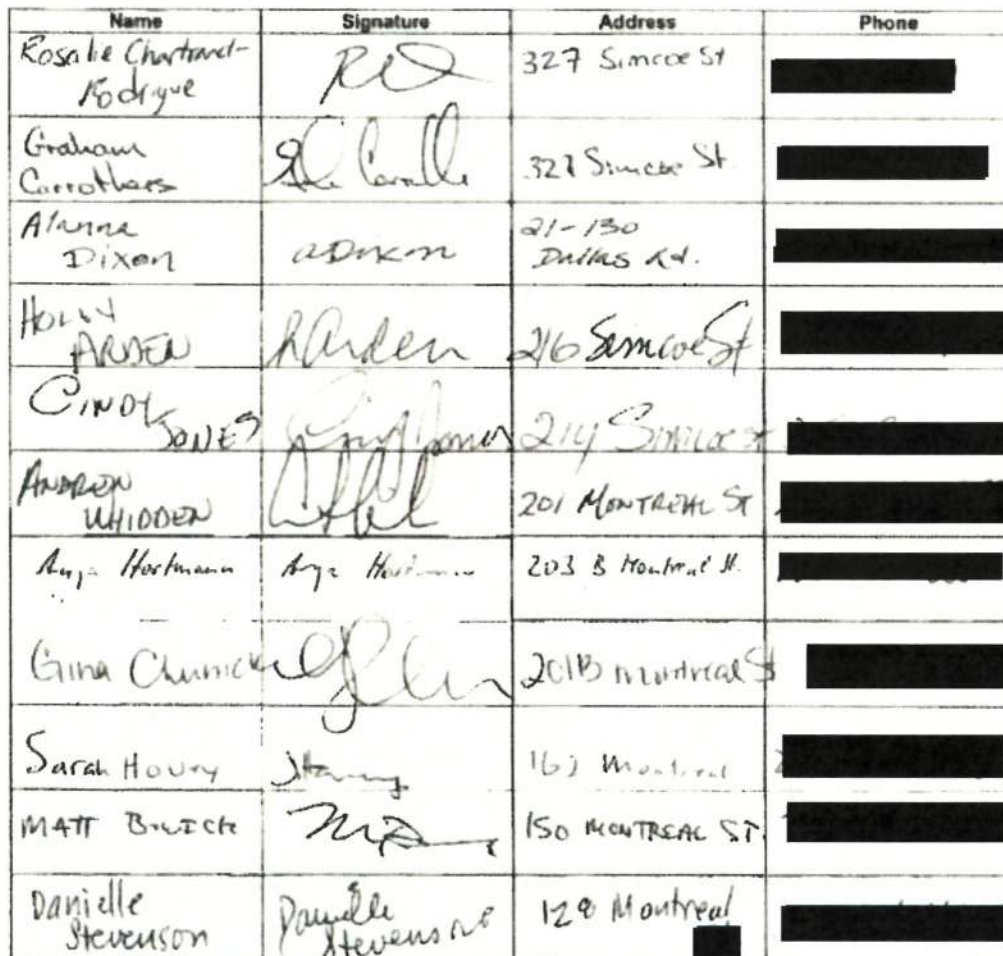 Name Signature Address Phone
Rosalie Chartrand-
Rodrigue
327 Simcoe St
Graham
Carrothers
327 Simcoe St.
Alanna
Dixon
ADixon
21-130
Dallas Rd.
HOLLY
ARDEN
hArden
216 Simcoe St
CINDY
JONES
214 Simcoe st
ANDREW
WHIDDEN
201 MONTREAL ST
Anja Hartmann Anja Hartmann 203 B Montreal St.
Gina 201B montreal St
Sarah 163 Montreal
MATT 150 MONTREAL ST.
Danielle
Stevenson
Danielle
Stevenson
128 Montreal